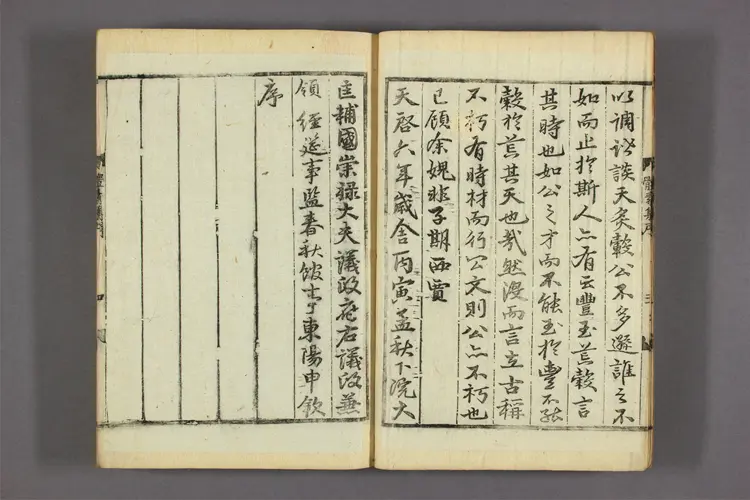 以調談天炙轂公不多遜誰之不
如而止於斯人亦有云豐玉荒穀言
其時也如公之才而不能玉於豐不能
穀於荒其天也哉然歿而言立古稱
不朽有時材而行公文則公亦不朽也
已顧余媿非子期
天啓六年歲舍丙寅孟秋下浣大
匡輔國崇祿大夫議政府右議政兼
領 經筵事監春秋館事東陽申欽
序
體素集序
體素集序 四